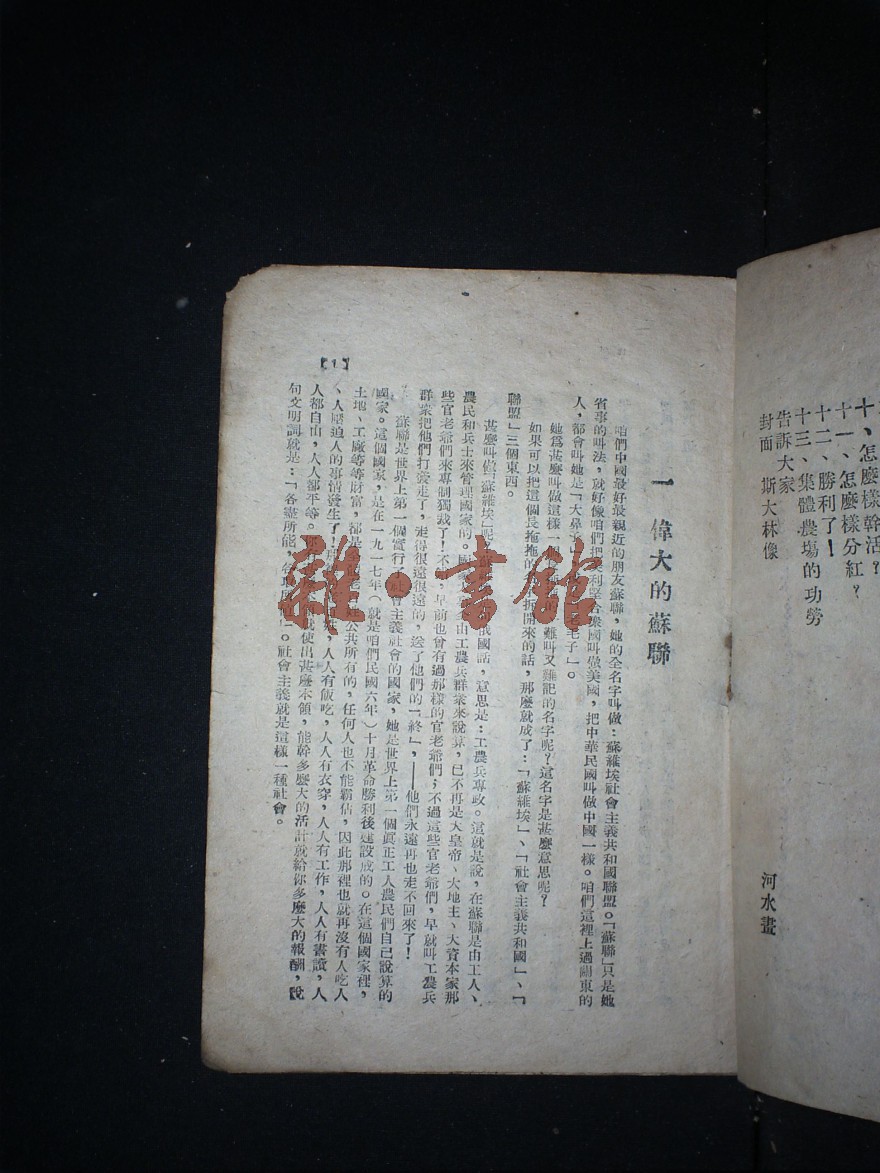 十、怎麼樣幹活？
十一、怎麼樣分紅？
十二、勝利了！
十三、集體農場的功勞
告訴大家
封面 斯大林像
河水畫
一 偉大的蘇聯
咱們中國最好最親近的朋友蘇聯，她的全名字叫做：蘇維埃社會主義共和國聯盟。「蘇聯」只是她
省事的叫法，就好像咱們把美利堅合衆國叫做美國，把中華民國叫做中國一樣。咱們這裡上過關東的
人，都會叫她是「大鼻子」老毛子」。
她爲甚麼叫做這樣一 難叫又難記的名字呢？這名字是甚麼意思呢？
如果可以把這個長拖拖的 拆開來的話，那麼就成了：「蘇維埃」、「社會主義共和國」、「
聯盟」三個東西。
甚麼叫做「蘇維埃」呢 俄國話，意思是：工農兵專政。這就是說，在蘇聯是由工人、
農民和兵士來管理國家的。國 由工農兵群衆來說算，已不再是大皇帝、大地主、大資本家那
些官老爺們來專制獨裁了！不 早前也曾有過那樣的官老爺們；不過這些官老爺們，早就叫工農兵
群衆把他們打發走了，走得很遠很遠的，送了他們的「終」，——他們永遠再也走不回來了！
蘇聯是世界上第一個實行了社會主義社會的國家，她是世界上第一個眞正工人農民們自己說算的
國家。這個國家，是在一九一七年（就是咱們民國六年）十月革命勝利後建設成的。在這個國家裡，
土地、工廠等等財富，都是 公共所有的，任何人也不能霸佔，因此那裡也就再沒有人吃人
、人壓迫人的事情發生了！ 人人有飯吃，人人有衣穿，人人有工作，人人有書讀，人
人都自由，人人都平等。 使出甚麼本領，能幹多麼大的活計就給你多麼大的報酬，說
句文明詞就是：「各盡所能， 」。社會主義就是這樣一種社會。
【1】
雜·書館